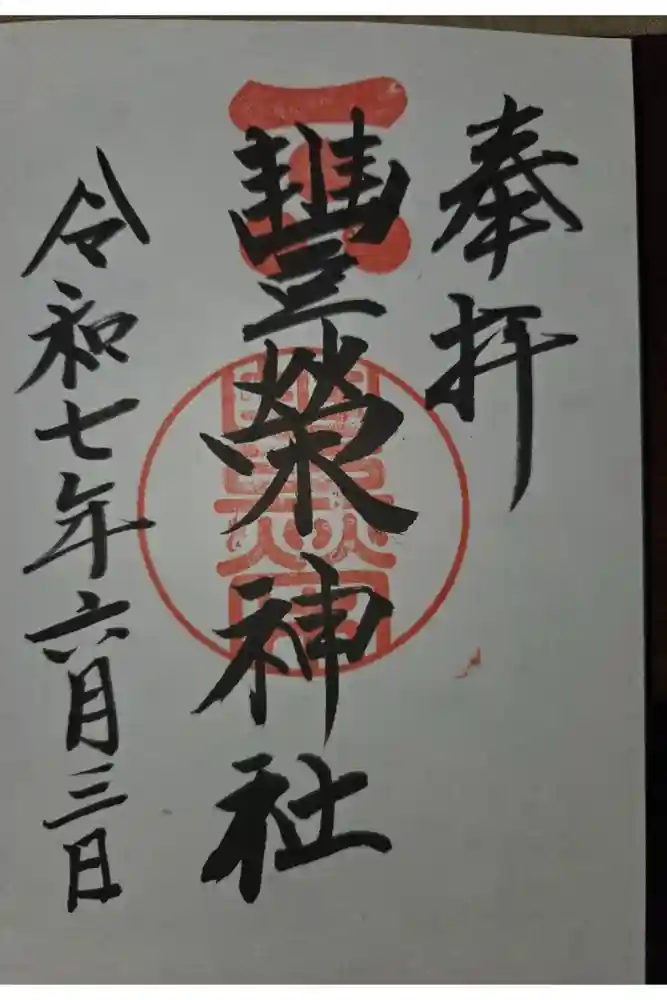 奉拝
豐榮神社
令和七年六月三日